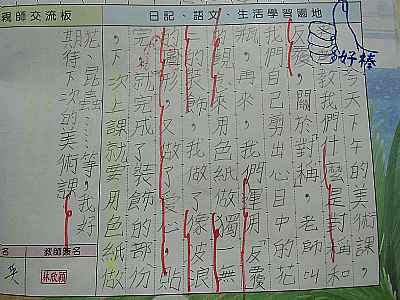 親師交流板
日記、語文、生活學習園地
好棒
今天下午的美術課，
教我們什麼是對稱和
反覆，關於「對稱」，老師叫
我們自己剪出心目中的花
瓶，再來，我們運用「反覆
的觀念來用色紙做獨一無
的裝飾，我做了像波浪
的圖形，又做了愛心，貼
完就完成了裝飾的部份
，下次上課就要用色紙做
花、昆蟲……等，我好
期待下次的美術課。
名
教師簽名